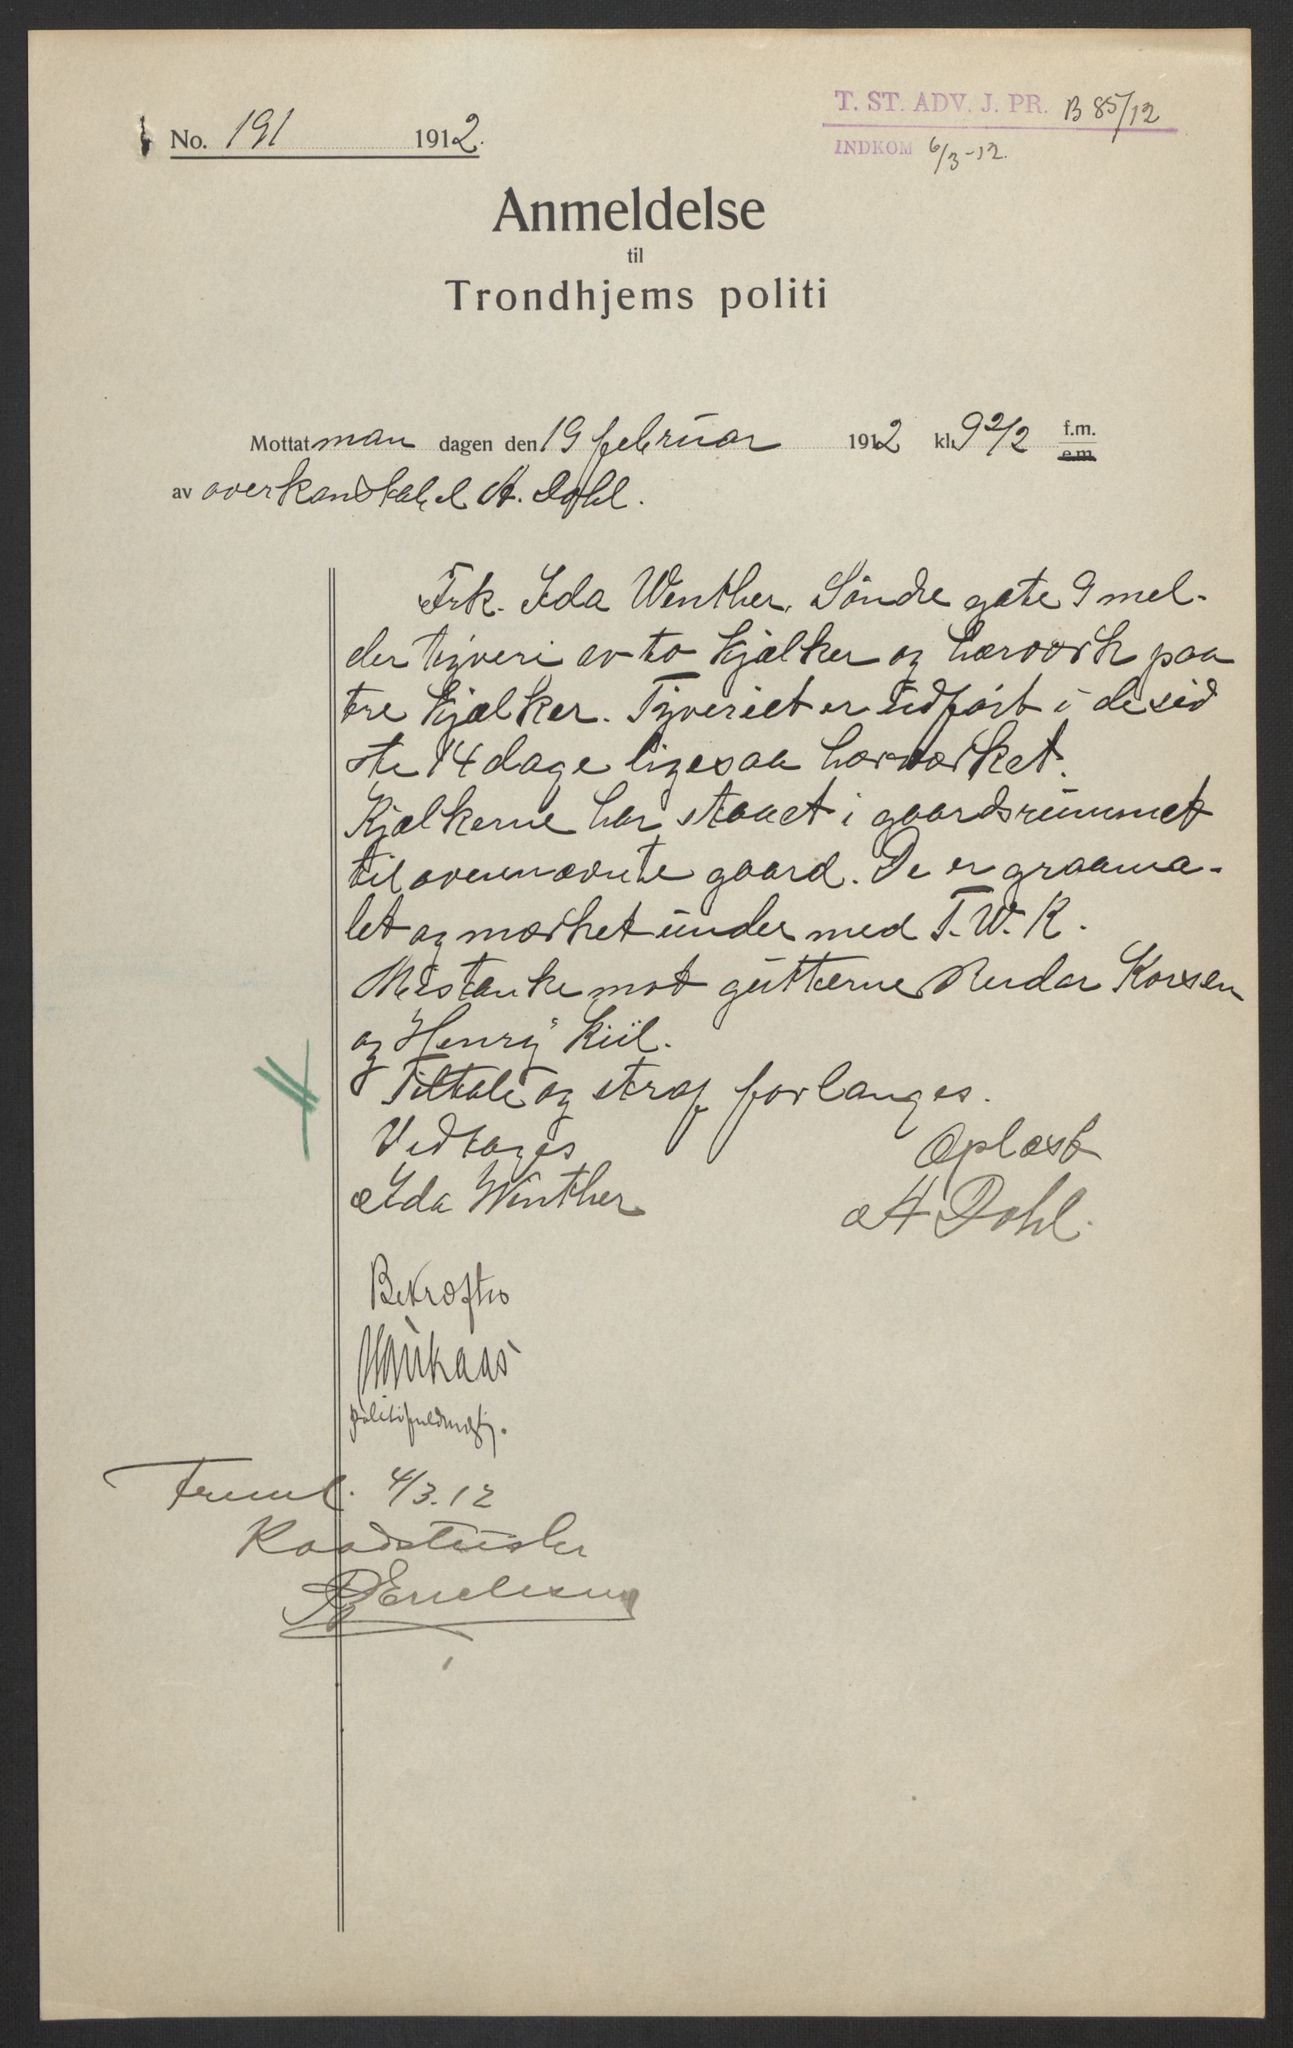 T. ST. ADV. J. PR. B 85/12
INDKOM 6/3-12.
No. 191 1912.
Anmeldelse
til
Trondhjems politi
Mottat man dagen den 19 februar 1912 kl. 9 2/2 f.m. e.m.
av overkonstabel A. Dahl.
Frk. Ida Winther, Söndre gate 9 mel-
der tyveri av to kjælker og hærværk paa
tre kjælker. Tyveriet er udfört i de sid
ste 14 dage ligesaa hærværket.
Kjælkerne har staaet i gaardsrummet
til ovennævnte gaard. De er graama-
let og mærket under med T. W. K.
Mistanke mot gutterne Reidar Korsen
og "Henry" Kiil.
Tiltale og straf forlanges.
Vedtages Oplæst
Ida Winther A Dahl.
Bekræftes
politifuldmægtig.
Freml. 4/3.12
Raadstuen